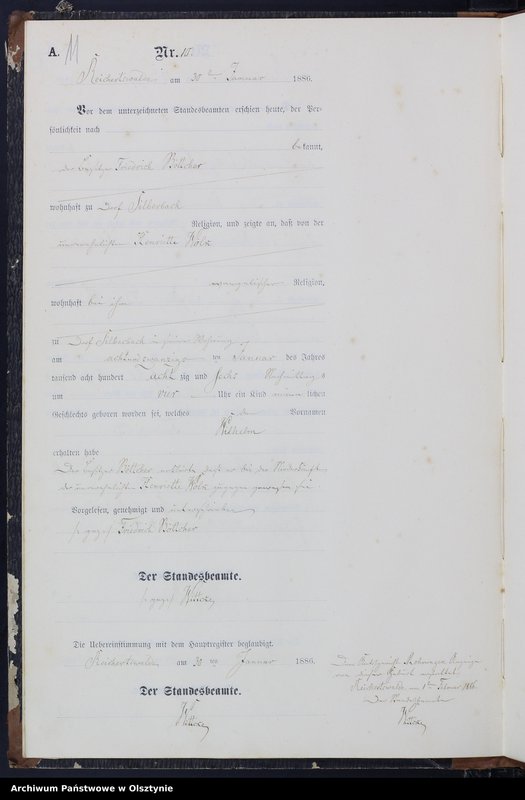 A. 11
Nr. 10.
Reichertswalde am 30ten Januar 1886.
Vor dem unterzeichneten Standesbeamten erschien heute, der Per-
sönlichkeit nach
bekannt,
der Besitzer Friedrich Böttcher
wohnhaft zu Dorf Silberbach
Religion, und zeigte an, daß von der
unverehelichten Henriette Wölk
evangelischer Religion,
wohnhaft bei ihm
zu Dorf Silberbach in seiner Wohnung
am achtundzwanzigsten Januar des Jahres
tausend acht hundert achtzig und sechs Nachmittags
um vier Uhr ein Kind männlichen
Geschlechts geboren worden sei, welches den Vornamen
Wilhelm
erhalten habe
Der Besitzer Böttcher erklärte daß er bei der Niederkunft
der unverehelichten Henriette Wölk zugegen gewesen sei.
Vorgelesen, genehmigt und unterschrieben
gez. Friedrich Böttcher
Der Standesbeamte.
gez.
Die Uebereinstimmung mit dem Hauptregister beglaubigt.
Reichertswalde am 30ten Januar 1886.
Der Standesbeamte.
Reichertswalde, am 1ten Februar 1886.
Der Standesbeamte
Archiwum Państwowe w Olsztynie